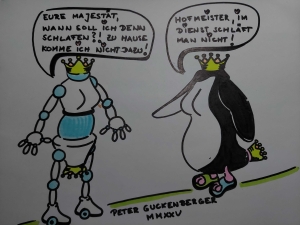 EURE MAJESTÄT,
WANN SOLL ICH DENN
SCHLAFEN?! ZU HAUSE
KOMME ICH NICHT DAZU!
HOFMEISTER, IM
DIENST SCHLÄFT
MAN NICHT!
PETER GUCKENBERGER
MMXXV